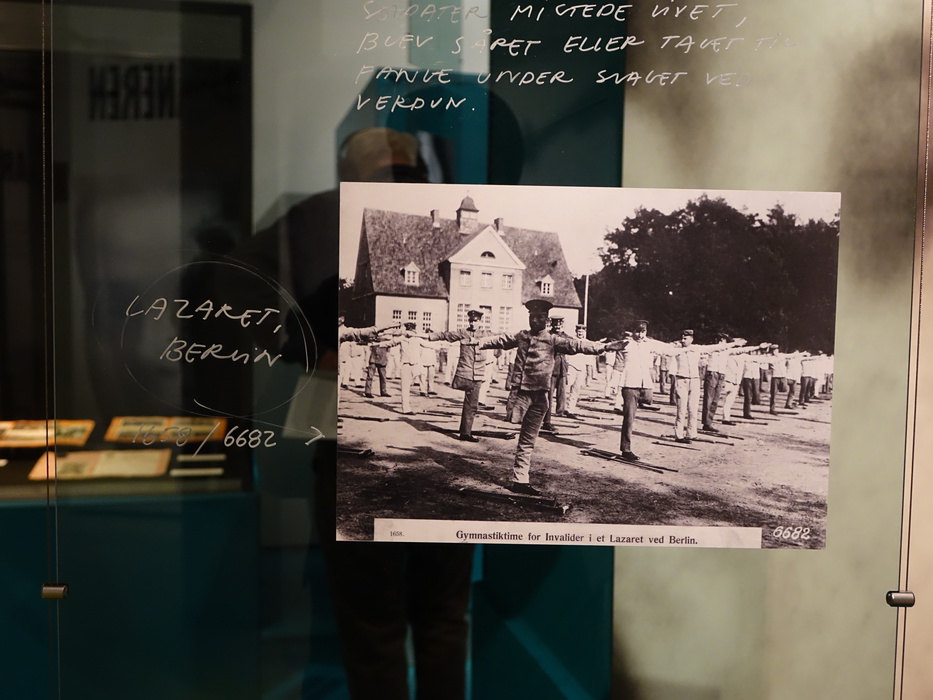 SOLDATER MISTEDE LIVET,
BLEV SÅRET ELLER TAGET TIL
FANGE UNDER SLAGET VED
VERDUN.
LAZARET,
BERLIN
1658 / 6682 >
1658. Gymnastiktime for Invalider i et Lazaret ved Berlin.
6682